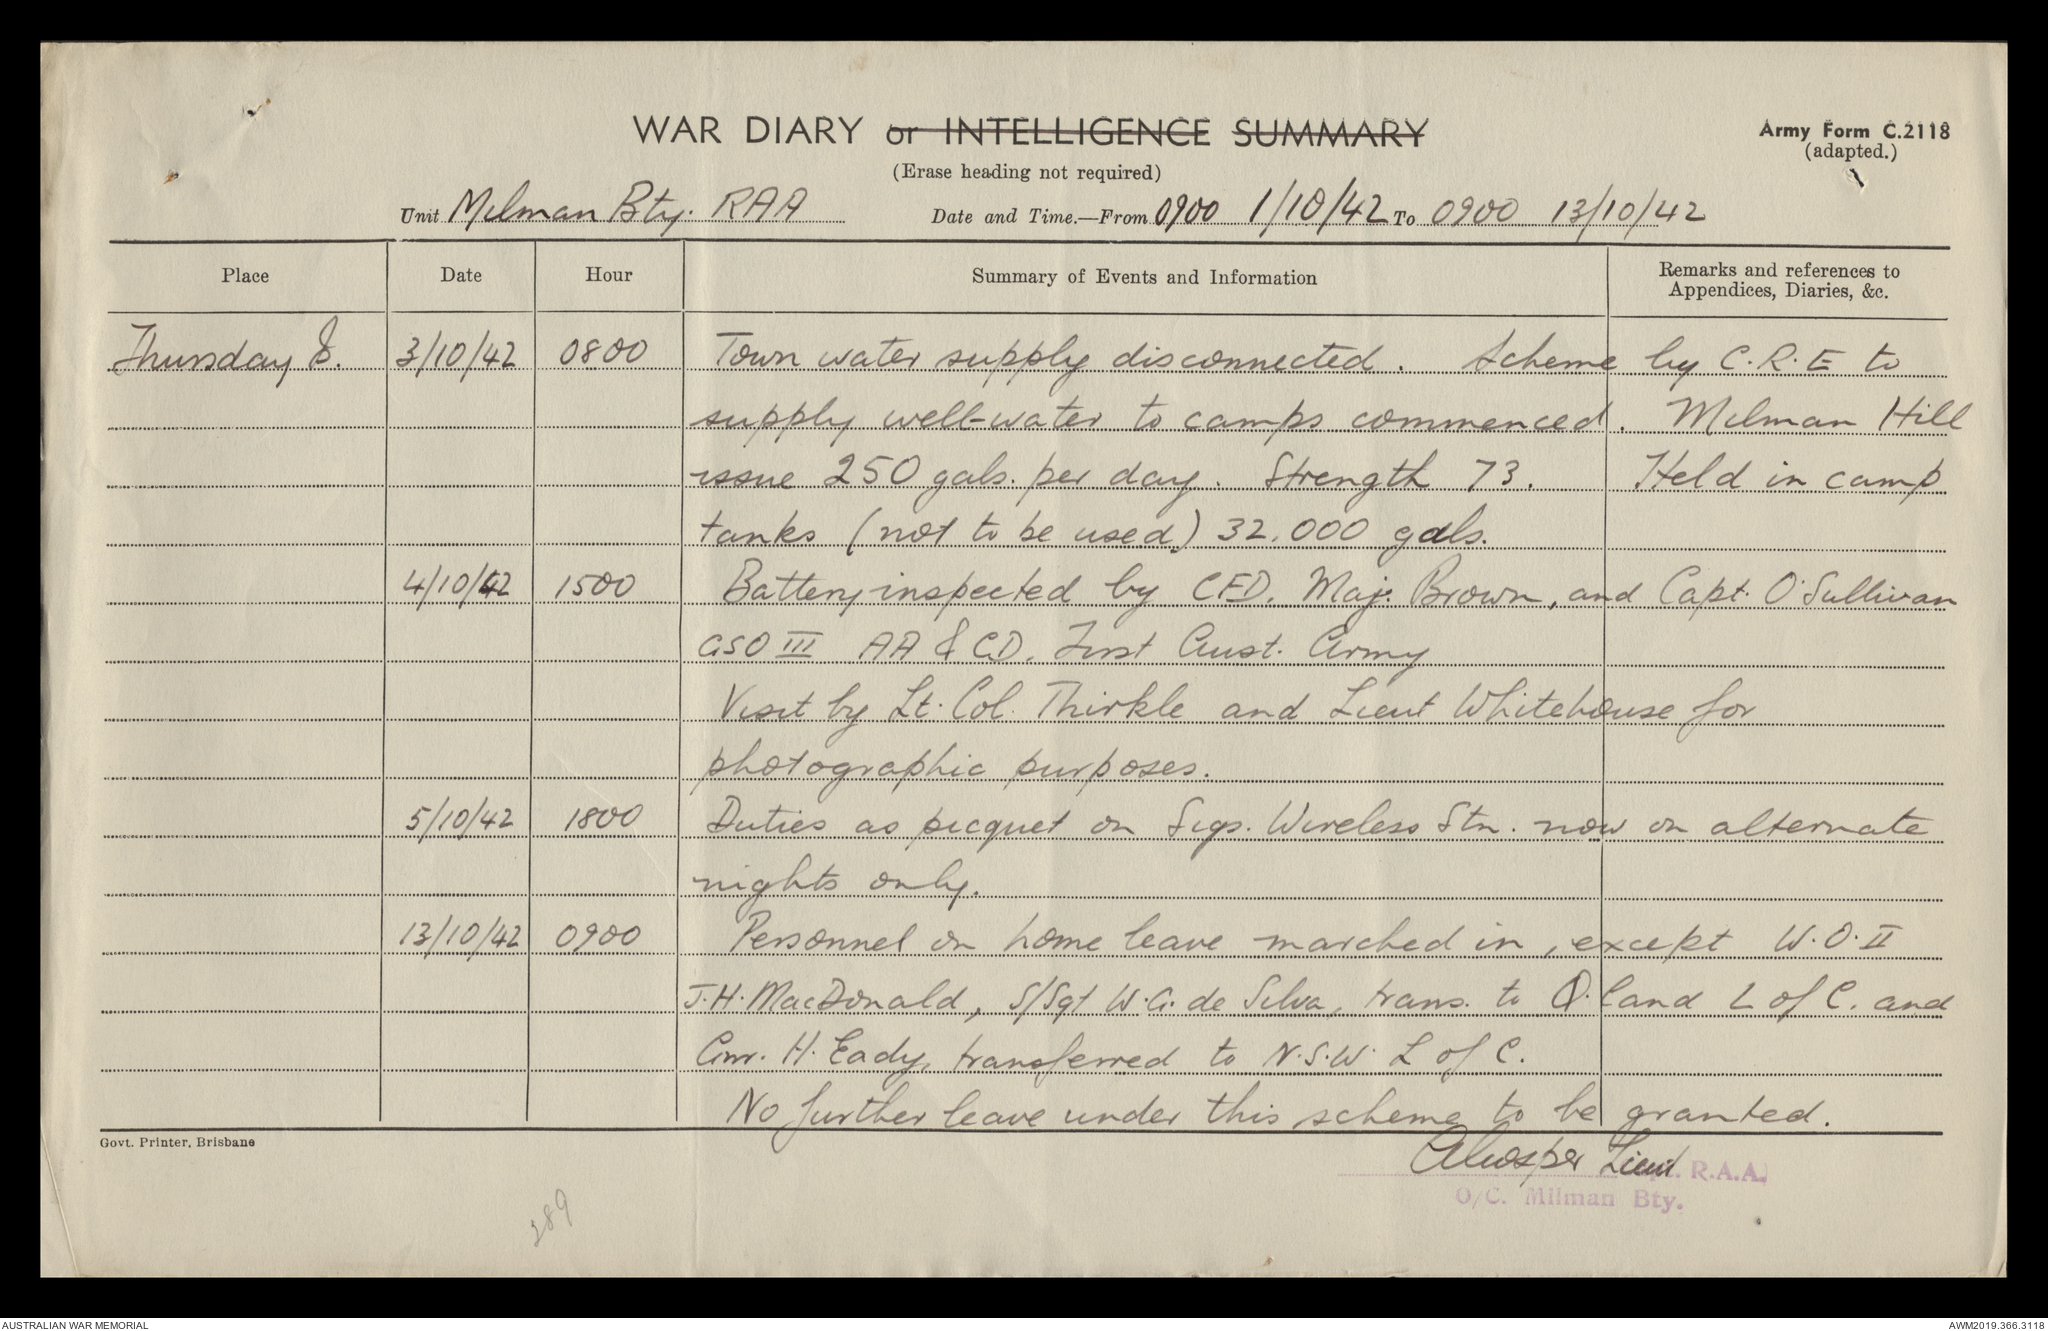 WAR DIARY or INTELLIGENCE SUMMARY
Army Form C.2118
(adapted.)
(Erase heading not required)
Unit Milman Bty. RAA Date and Time.—From 0900 1/10/42 To 0900 13/10/42
Place Date Hour Summary of Events and Information Remarks and references to Appendices, Diaries, &c.
Thursday I. 3/10/42 0800 Town water supply disconnected. Scheme by C.R.E to
supply well-water to camps commenced. Milman Hill
issue 250 gals. per day. Strength 73. Held in camp
tanks (not to be used) 32,000 gals.
4/10/42 1500 Battery inspected by CFD, Maj. Brown, and Capt. O'Sullivan
GSO III AA & CD. First Aust. Army
Visit by Lt. Col. Thirkle and Lieut Whitehouse for
photographic purposes.
5/10/42 1800 Duties as picquet on Sigs. Wireless Stn. now on alternate
nights only.
13/10/42 0900 Personnel on home leave marched in, except W.O.II
J.H. MacDonald, S/Sgt W.G. de Silva, trans. to Q.land L of C. and
Gnr. H. Eady, transferred to N.S.W. L of C.
No further leave under this scheme to be granted.
Govt. Printer, Brisbane
Lieut R.A.A.
O/C. Milman Bty.
289
AUSTRALIAN WAR MEMORIAL
AWM2019.366.3118